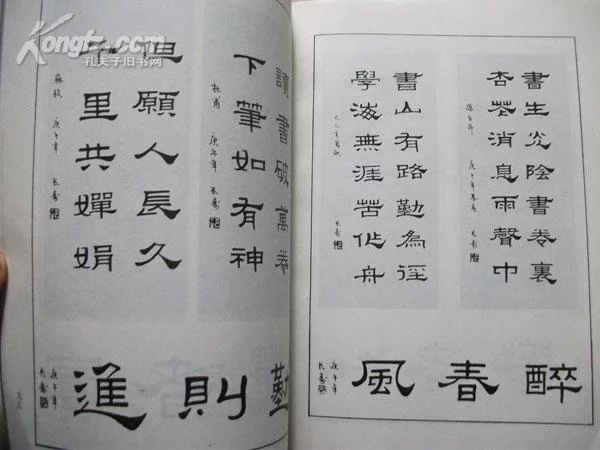 Kongfz.com
孔夫子旧书网
書生光陰書卷裏
杏花消息雨聲中
庚午年
長壽
書山有路勤為徑
學海無涯苦作舟
長壽
醉春風
庚午年
長壽
讀書破萬卷
下筆如有神
杜甫 庚午年 長壽
但願人長久
千里共嬋娟
蘇軾 庚午年 長壽
勤則進
庚午年
長壽
九五